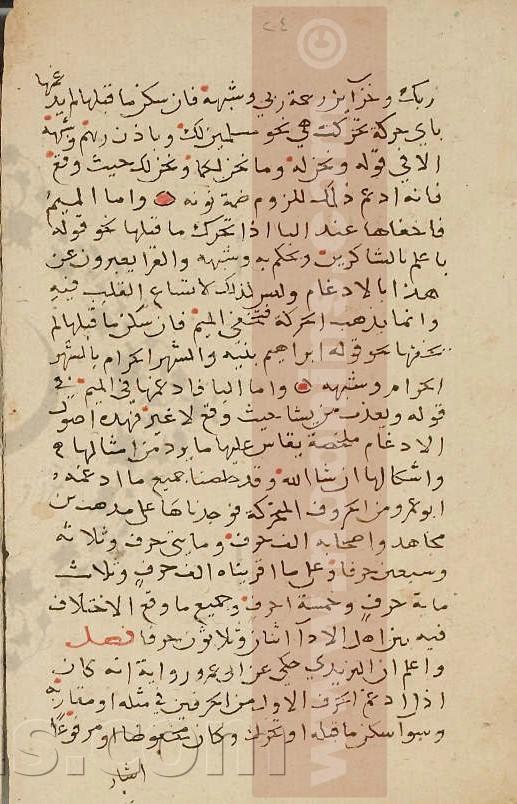 ٢٤
ربك وخزاين رحمة ربي وشبهه فان سكن ما قبلها لم يدغمها
باي حركة تحركت هي نحو مسلمين لك وباذن ربهم وشبهه
الا في قوله ونحن له وما نحن لكما ونحن لك حيث وقع
فانه ادغم ذلك للزوم ضمة نونه واما الميم
فاخفاها عند البا اذا تحرك ما قبلها نحو قوله
باعلم بالشاكرين ويحكم به وشبهه والقرا يعبرون عن
هذا بالادغام وليس كذلك لامتناع القلب فيه
وانما يذهب الحركة فتخفى الميم فان سكن ما قبلها لم
يخفها نحو قوله ابراهيم بنيه والشهر الحرام بالشهر
الحرام وشبهه واما البا فادغمها في الميم في
قوله ويعذب من يشا حيث وقع لا غير فهذه اصول
الادغام ملخصة يقاس عليها ما يرد من امثالها
واشكالها ان شا الله وقد حصلنا جميع ما ادغمه
ابو عمرو من الحروف المتحركة فوجدناه على مذهب بن
مجاهد واصحابه الف حرف ومايتي حرف وثلاثه
وسبعين حرفا وعلى ما اقريناه الف حرف وثلاث
ماية حرف وخمسة احرف وجميع ما وقع الاختلاف
فيه بين اهل الادا اثنان وثلاثون حرفا فصل
واعلم ان اليزيدي حكى عن ابي عمرو رواية انه كان
اذا ادغم الحرف الاول من الحرفين في مثله او مقاربه
وسوا سكن ما قبله او تحرك وكان مخفوضا او مرفوعا
اشار